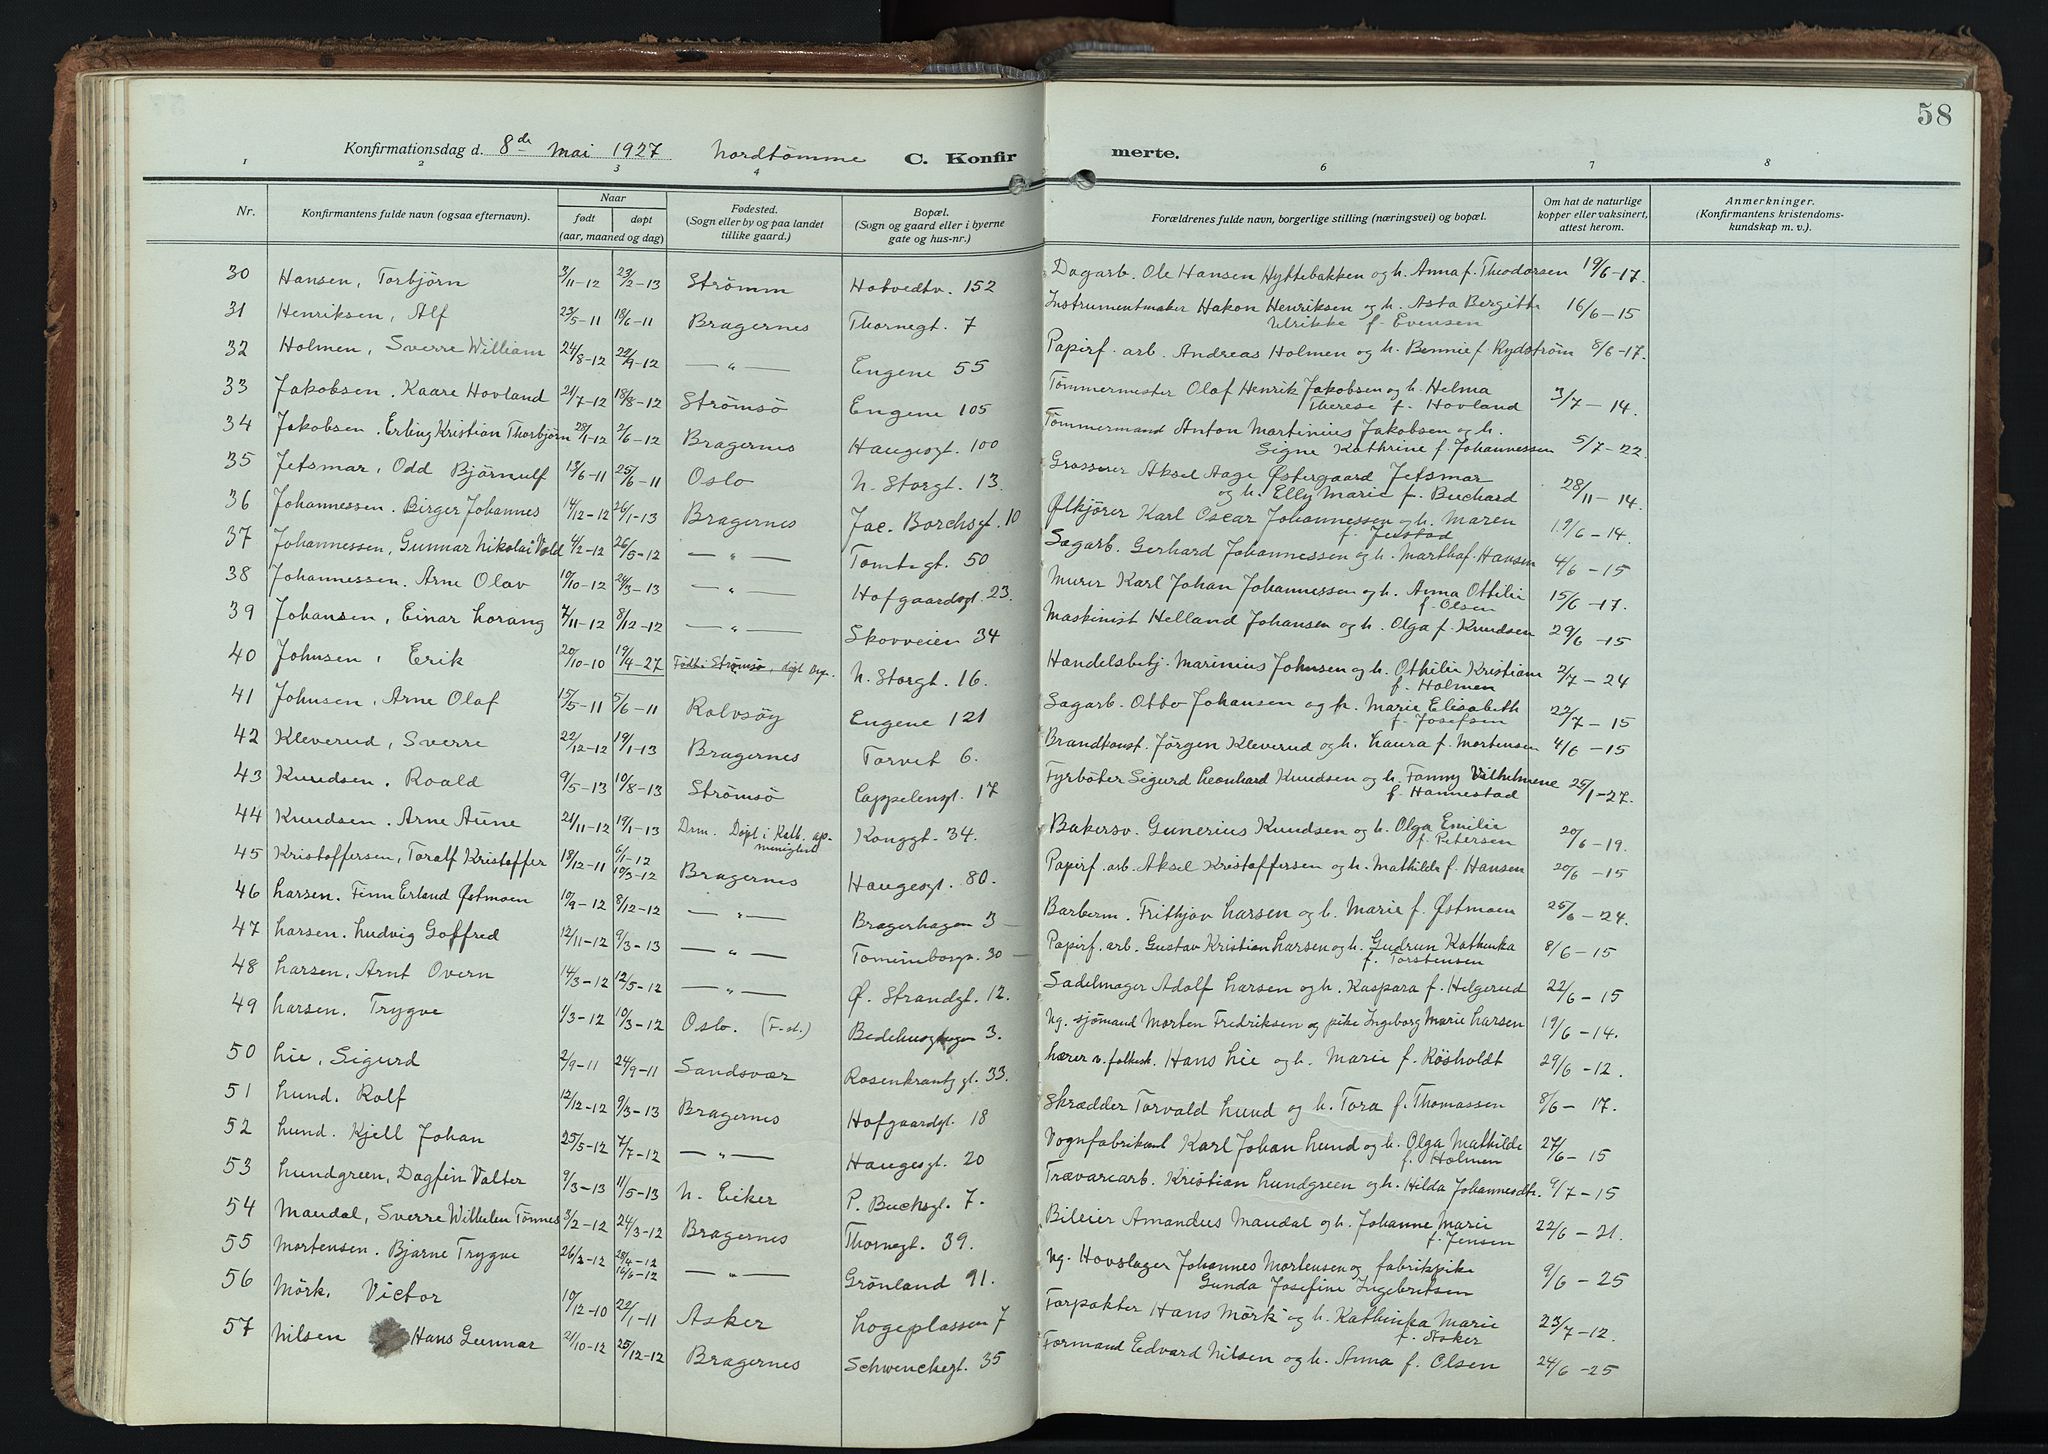 58
Konfirmationsdag d. 8de mai 1927 Nordtømme C. Konfirmerte.
1 2 3 4 6 7 8
Nr. Konfirmantens fulde navn (ogsaa efternavn). Naar født døpt (aar, maaned og dag) Fødested. (Sogn eller by og paa landet tillike gaard.) Bopæl. (Sogn og gaard eller i byerne gate og hus-nr.) Forældrenes fulde navn, borgerlige stilling (næringsvei) og bopæl. Om hat de naturlige kopper eller vaksinert, attest herom. Anmerkninger. (Konfirmantens kristendomskundskap m. v.)
30 Hansen, Torbjörn 3/11-12 23/2-13 Strömm Hotvedtv. 152 Dagarb. Ole Hansen Hyttebakken og h. Anna f. Theodorsen 19/6-17.
31 Henriksen, Alf 23/5-11 18/6-11 Bragernes Thornegt. 7 Instrumentmaker Hakon Henriksen og h. Asta Bergitte Ulrikke f. Evensen 16/6-15
32 Holmen, Sverre William 24/8-12 22/9-12 — " — Engene 55 Papirf. arb. Andreas Holmen og h. Bennie f. Rydström 8/6-17.
33 Jakobsen. Kaare Hovland 21/7-12 18/8-12 Strømsø Engene 105 Tömmermester Olaf Henrik Jakobsen og h. Helma Therese f. Hovland 3/7-14.
34 Jakobsen. Erling Kristian Thorbjørn 28/1-12 2/6-12 Bragernes Haugesgt. 100 Tömmermand Anton Martinius Jakobsen og h. Signe Kathrine f. Johannessen 5/7-22
35 Jetsmar, Odd Bjärnulf 13/6-11 25/6-11 Oslo N. Storgt. 13. Grosserer Aksel Aage Østergaard Jetsmar og h. Elly Marie f. Buchard 28/11-14.
36 Johannessen. Birger Johannes 14/12-12 26/1-13 Bragernes Jac. Borchsgt. 10 Ølkjører Karl Oscar Johannessen og h. Maren f. 19/6-14.
37 Johannessen, Gunnar Nikolai Vold 4/2-12 26/5-12 — " — Tomtegt. 50 Sagarb. Gerhard Johannessen og h. Martha f. Hansen 4/6-15
38 Johannessen. Arne Olav 10/10-12 24/3-13 — " — Hofgaardsgt. 23. Murer Karl Johan Johannessen og h. Anna Othilie f. Olsen 15/6-17.
39 Johansen, Einar Lorang 7/11-12 8/12-12 — " — Skovveien 34 Maskinist Helland Johansen og h. Olga f. Knudsen 29/6-15
40 Johnsen, Erik 20/10-10 19/4-27 Född i Strömsö, døpt Brgn. N. Storgt. 16. Handelsbetj. Marinius Johnsen og h. Othilie Kristiane f. Holmen 2/7-24
41 Johnsen, Arne Olaf 15/5-11 5/6-11 Rolvsøy Engene 121 Sagarb. Otto Johansen og h. Marie Elisabeth f. Josefsen 22/7-15
42 Kleverud, Sverre 22/12-12 19/1-13 Bragernes Torvet 6. Brandkonst. Jörgen Kleverud og h. Laura f. Mortensen 4/6-15
43 Knudsen. Roald 9/5-13 10/8-13 Strømsø Cappelensgt. 17 Fyrböter Sigurd Leonhard Knudsen og h. Fanny Vilhelmene f. Hannestad 25/1-27.
44 Knudsen. Arne Aune 21/11-12 19/1-13 Drm. Döpt i Kath. ap. menighet Konggt. 34. Bakersv. Gunerius Knudsen og h. Olga Emilie f. Petersen 20/6-19.
45 Kristoffersen, Toralf Kristoffer 18/12-11 6/1-12 10/3-12 Bragernes Haugesgt. 80. Papirf. arb. Aksel Kristoffersen og h. Mathilde f. Hansen 20/6-15
46 Larsen. Finn Erland Østmoen 10/9-12 8/12-12 — " — Bragerhagen 3 — Barberm. Frithjov Larsen og h. Marie f. Østmoen 25/6-24.
47 Larsen. Ludvig Goffred 12/11-12 9/3-13 — " — Tomineborgv. 30 — Papirf. arb. Gustav Kristian Larsen og h. Gudrun Kathinka f. Torstensen 8/6-15
48 Larsen, Arnt Overn 14/3-12 12/5-12 — " — Ø. Strandgt. 12. Sadelmager Adolf Larsen og h. Kaspara f. Helgerud 22/6-15
49 Larsen. Trygve 1/3-12 10/3-12 Oslo. (F-st.) Bedehusghagen 3. Ug. sjömand Morten Fredriksen og pike Ingeborg Marie Larsen 19/6-14.
50 Lie, Sigurd 2/9-11 24/9-11 Sandsvær Rosenkrantzgt. 33. Lærer v. folkesk. Hans Lie og h. Marie f. Rösholdt 29/6-12.
51 Lund. Rolf 12/12-12 9/3-13 Bragernes Hofgaardgt. 18 Skrædder Torvald Lund og h. Tora f. Thomassen 8/6-17.
52 Lund. Kjell Johan 25/5-12 7/7-12 — " — Haugesgt. 20 Vognfabrikant Karl Johan Lund og h. Olga Mathilde f. Holmen 27/6-15
53 Lundgreen, Dagfin Valter 9/3-13 11/5-13 N. Eiker P. Buchsgt. 7. Trævarearb. Kristian Lundgreen og h. Hilda Johannesdtr. 9/7-15
54 Mandal, Sverre Wilhelm Tönnes 3/2-12 24/3-12 Bragernes Thornegt. 39. Bileier Amandus Mandal og h. Johanne Marie f. Jensen 22/6-21.
55 Mortensen. Bjarne Trygve 26/2-12 28/4-12 16/6-12 — " — Grønland 91. Ug. Hovslager Johannes Mortensen og fabrikpike Gunda Josefine Ingebritsen 9/6-25
56 Mörk. Victor 10/12-10 22/1-11 Asker Logeplassen 7 Forpakter Hans Mörk og h. Kathinka Marie f. Asker 23/7-12.
57 Nilsen Hans Gunnar 21/10-12 25/12-12 Bragernes Schwenckegt. 35 Formand Edvard Nilsen og h. Anna f. Olsen 24/6-25